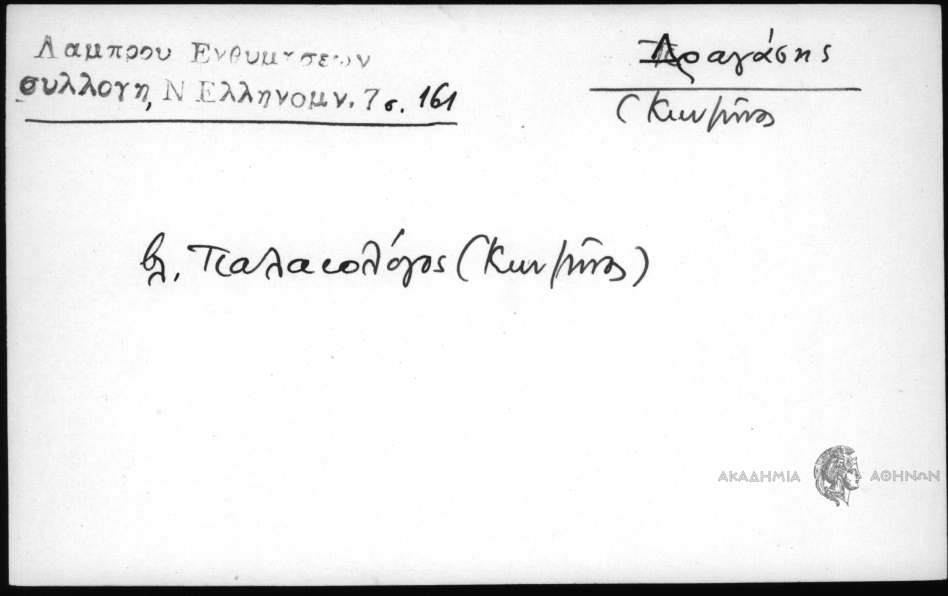 Λαμπρου Ενθυμησεων
συλλογη, Ν Ελληνομν. 7 σ. 161
Δραγάσης
(Κων/τῖνος
βλ. Παλαιολόγος (Κων/τῖνος)
ΑΚΑΔΗΜΙΑ ΑΘΗΝΩΝ